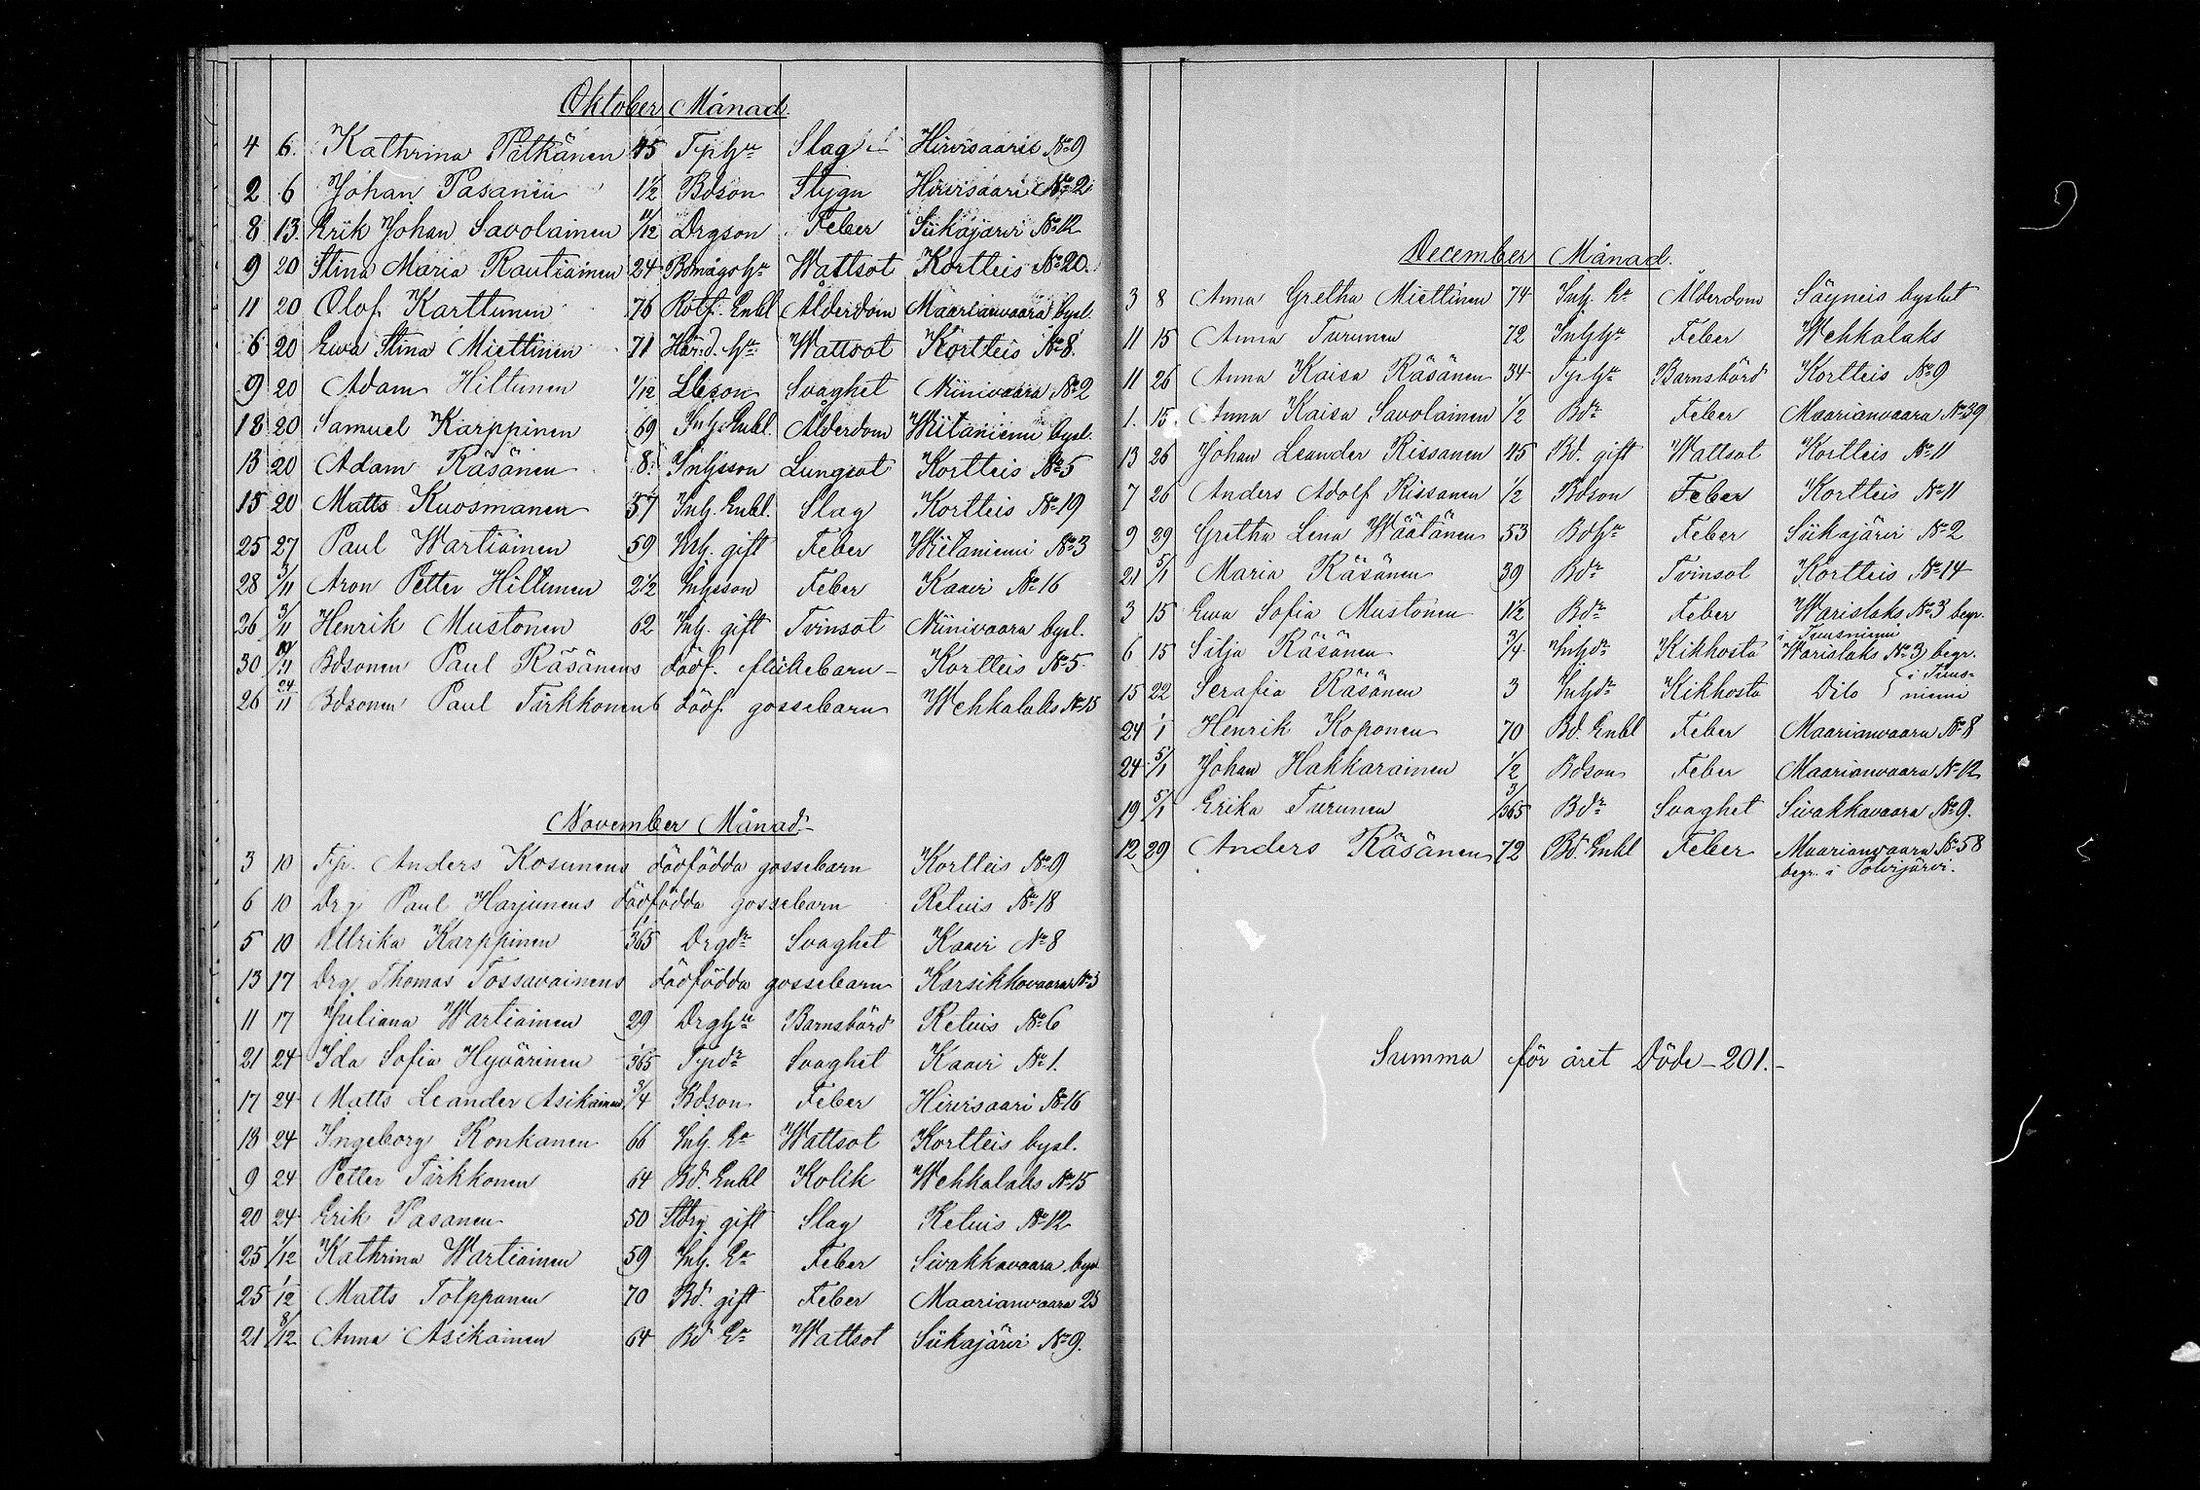 Oktober Månad.
4 6. Kathrina Pitkänen 45 Tphu Slag Hirvisaari No 9
2 6 Johan Pasanen 1 1/2 Bdson Stygn Hirvisaari No 2
8 13 Erik Johan Savolainen 11/12 Drgson Feber Siikajärvi No 12
9 20 Stina Maria Rautiainen 24 Bdmågshu Wattsot Kortteis No 20.
11 20 Olof Karttunen 76 Rotf. Enkl Ålderdom Maarianvaara bysl.
6 20 Ewa Stina Miettinen 71 Hu Wattsot Kortteis No 8.
9 20 Adam Hiltunen 1/12 Svaghet Niinivaara No 2
18 20 Samuel Karppinen 69 Inh. Enkl. Ålderdom Wiitaniemi bysl.
13 20 Adam Räsänen 8. Inhsson Lungsot Kortteis No 5
15 20 Matts Kuosmanen 57 Inh. Enkl. Slag Kortteis No 19
25 27 Paul Wartiainen 59 Inh. gift Feber Wiitaniemi No 3
28 3/11 Aron Petter Hiltunen 2 1/2 Inhsson Feber Kaavi No 16
26 3/11 Henrik Mustonen 62 Inh. gift Tvinsot Niinivaara bysl.
30 11 Bdsonen Paul Räsänens dödf. flickebarn - Kortteis No 5
26 24/11 Bdsonen Paul Tirkkonens dödf. gossebarn Wehkalaks No 15
November Månad.-
3 10 Tp. Anders Kosunens dödfödda gossebarn Kortteis No 9
6 10 Drg Paul Harjunens dödfödda gossebarn Retuis No 18
5 10 Ullrika Karppinen 1/365 Drgdr Svaghet Kaavi No 8
13 17 Drg Thomas Tossavainens dödfödda gossebarn Karsikkovaara No 3
11 17 Juliana Wartiainen 29 Drghu Barnsbörd Retuis No 6
21 24 Ida Sofia Hyvärinen 1/365 Tpdr Svaghet Kaavi No 1.
17 24 Matts Leander Asikainen 3/4 Bdson Feber Hirvisaari No 16
13 24 Ingeborg Ronkanen 66 Inh. Ea Wattsot Kortteis bysl.
9 24 Petter Tirkkonen 64 Bd Enkl Kolik Wehkalaks No 15
20 24 Erik Pasanen 50 Stdrg gift Slag Retuis No 12
25 1/12 Kathrina Wartiainen 59 Inh. Ea Feber Sivakkavaara bysl
25 1/12 Matts Tolppanen 70 Bd. gift Feber Maarianvaara 25
21 8/12 Anna Asikainen 64 Bd Ea Wattsot Siikajärvi No 9.
December Månad.
3 8 Anna Gretha Miettinen 74 Inh. Ea Ålderdom Säyneis byslut
11 15 Anna Turunen 72 Inhhu Feber Wehkalaks
11 26 Anna Kaisa Räsänen 34 Tphu Barnsbörd Kortteis No 9
1. 15 Anna Kaisa Savolainen 1/2 Bdr Feber Maarianvaara No 39
13 26 Johan Leander Rissanen 45 Bd. gift Wattsot Kortteis No 11
7 26 Anders Adolf Rissanen 1/2 Bdson Feber Kortteis No 11
9 29 Gretha Lena Wäätänen 53 Bdhu Feber Siikajärvi No 2
21 5/1 Maria Räsänen 39 Bdr Tvinsot Kortteis No 14
3 15 Ewa Sofia Mustonen 1 1/2 Bdr Feber Warislaks No 3 begr.
i Tuusniemi
6 15 Silja Räsänen 3/4 Inhdr Kikhosta Warislaks No 3 begr.
i Tuus-
15 22 Serafia Räsänen 3 Inhdr Kikhosta Dito niemi
24 1/1 Henrik Koponen 70 Bd. Enkl Feber Maarianvaara No 8
24 5/1 Johan Hakkarainen 1/2 Bdson Feber Maarianvaara No 12
19 5/1 Erika Turunen 3/365 Bdr Svaghet Sivakkavaara No 9.
12 29 Anders Räsänen 72 Bd. Enkl Feber Maarianvaara No 58
begr. i Polvijärvi.
Summa för året Döde - 201.-